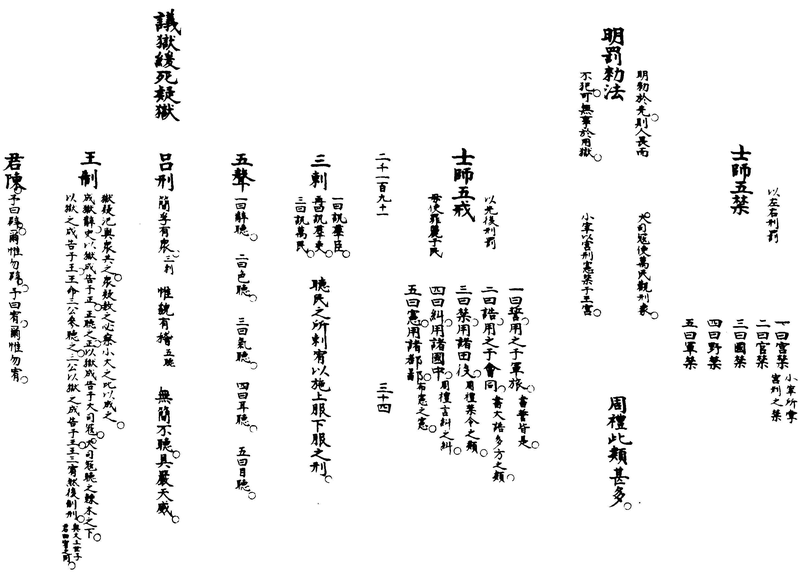 士師五禁
以左右刑罰
一曰宫禁
小宰所掌
宫刑之禁
二曰官禁
三曰國禁
四曰野禁
五曰軍禁
明罰勑法
明勑於先則人畏而
不犯可無事於用獄
大司寇使萬民觀刑象
小宰以宫刑憲禁于王宫
周禮此類甚多
士師五戒
以先後刑罰
毋使罪麗于民
一曰誓用之于軍旅
書誓皆是
二曰誥用之于會同
書大誥多方之類
三曰禁用諸田役
周禮禁令之類
四曰糾用諸國中
周禮言糾之糾
五曰憲用諸都鄙
布憲之憲
二千一百九十一
三十四
三刺
一曰訊羣臣
再曰訊羣吏
三曰訊萬民
聽民之所刺宥以施上服下服之刑
五聲
一曰辭聽 二曰色聽 三曰氣聽 四曰耳聽 五曰目聽
議獄緩死疑獄
吕刑
簡孚有衆三刺 惟貌有稽五聽 無簡不聽具嚴天威
王制
獄疑汜與衆共之衆疑赦之必察小大之比以成之
成獄辭史以獄成告于正正聽之正以獄成告于大司寇大司寇聽之棘木之下
以獄之成告于王王命三公參聽之三公以獄之成告于王王三宥然後制刑
與文王世子
君陳
予曰辟爾惟勿辟予曰宥爾惟勿宥